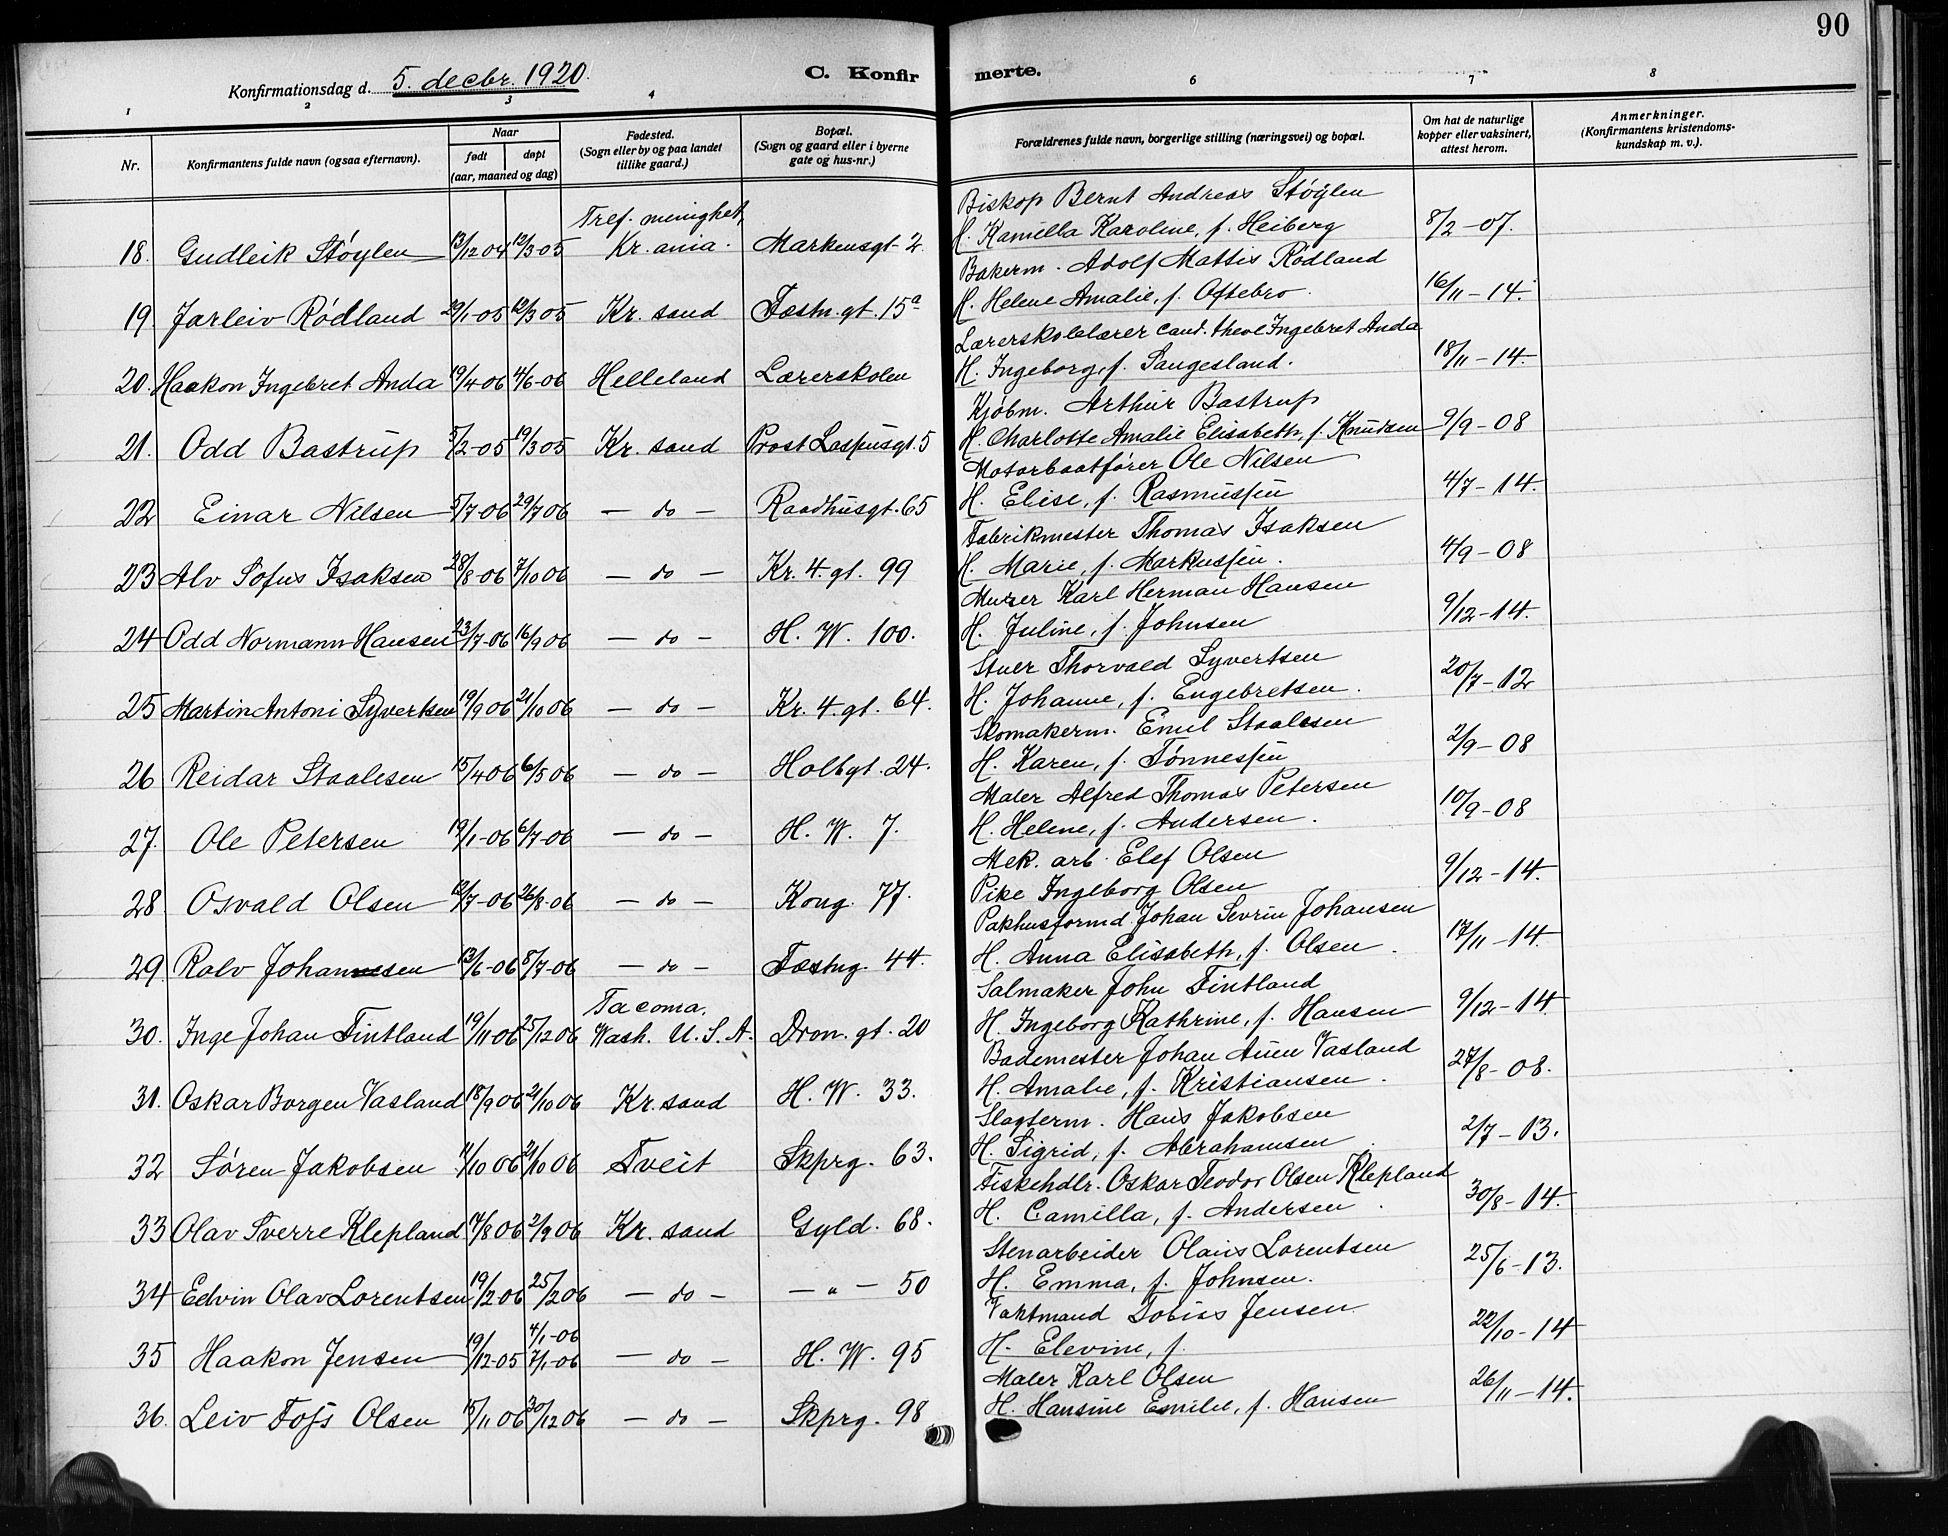 90
Konfirmationsdag d. 5. decbr. 1920.
C. Konfirmerte.
1 2 3 4 6 7 8
Nr.
Konfirmantens fulde navn (ogsaa efternavn).
Naar
født
døpt
(aar, maaned og dag)
Fødested.
(Sogn eller by og paa landet
tillike gaard.)
Bopæl.
(Sogn og gaard eller i byerne
gate og hus-nr.)
Forældrenes fulde navn, borgerlige stilling (næringsvei) og bopæl.
Om hat de naturlige
kopper eller vaksinert,
attest herom.
Anmerkninger.
(Konfirmantens kristendoms-
kundskap m. v.).
Tref. menighet, Biskop Bernt Andreas Støylen
18. Gudleik Støylen 13/12 04 12/3 05 Kr. ania. Markensgt. 2. H. Kamilla Karoline, f. Heiberg 8/2-07.
Bakerm. Adolf Mattis Rødland
19 Jarleiv Rødland /1-05 12/3 05 Kr. sand Fæstn. gt. 15a H. Helene Amalie, f. Oftebro. 16/11-14.
Lærerskolelærer cand. theol Ingebret Anda
20. Haakon Ingebret Anda 19/4 06 4/6-06 Helleland Lærerskolen H. Ingeborg, f. Saugesland. 18/11-14.
Kjøbm. Arthur Bastrup
21. Odd Bastrup 5/2-05 19/3 05 Kr. sand Prost Laspusgt. 5 H. Charlotte Amalie Elisabeth, f. Knudsen 9/9-08
Motorbaatfører Ole Nilsen
22 Einar Nilsen 5/7-06 29/7 06 - do - Raadhusgt. 65 H. Elise, f. Rasmussen 4/7-14.
Fabrikmester Thomas Isaksen
23 Alv Sofus Isaksen 28/8-06 7/10 06 - do - Kr. 4. gt. 99 H. Marie, f. Markussen. 4/9-08
Murer Karl Herman Hansen
24 Odd Normann Hansen 23/7-06 16/9 06 - do - H. W. 100. H. Juline, f. Johnsen 9/12-14.
Stuer Thorvald Syvertsen
25 Martin Antoni Syvertsen 19/9 06 21/10 06 - do - Kr. 4. gt. 64. H. Johanne, f. Engebretsen. 20/7-12
Skomakerm. Emil Staalesen
26 Reidar Staalesen 15/4 06 6/5 06 - do - Holbgt. 24. H. Karen, f. Tønnessen 2/9-08
Maler Alfred Thomas Petersen
27. Ole Petersen 19/1-06 6/7-06 - do - H. W. 7. H. Helene, f. Andersen. 10/9-08
Mek. arb. Elef Olsen
28 Osvald Olsen 12/7-06 26/8-06 - do - Kong. 77. Pike Ingeborg Olsen 9/12-14.
Pakhusformd. Johan Sevrin Johansen
29. Ralv Johannesen 13/6-06 8/7-06 - do - Fæstng. 44. H. Anna Elisabeth, f. Olsen. 17/11-14.
Tacoma. Salmaker John Fintland
30. Inge Johan Fintland 19/11 06 25/12 06 Wash. U. S. A. Dron. gt. 20 H. Ingeborg Kathrine, f. Hansen 9/12-14.
Bademester Johan Vasland
31. Oskar Borgen Vasland 18/9 06 21/10 06 Kr. sand H. W. 33. H. Amalie, f. Kristiansen. 27/8-08.
Slagterm. Hans Jakobsen
32 Søren Jakobsen 11/10 06 21/10 06 Tveit Skprg. 63. H. Sigrid, f. Abrahamsen. 2/7-13.
Fiskehdlr. Oskar Teodor Olsen Klepland
33 Olav Sverre Klepland /8 06 2/9 06 Kr. sand Gyld. 68. H. Camilla, f. Andersen. 30/8-14.
Stenarbeider Olaus Lorentsen
34 Edvin Olav Lorentsen 19/2 06 25/2 06 - do - - " - 50 H. Emma, f. Johnsen. 25/6-13.
4/1-06 Vaktmand Tobias Jensen
35 Haakon Jensen 19/12-05 7/1-06 - do - H. W. 95 H. Elevine, f. 22/10-14
Maler Karl Olsen
36. Leiv Foss Olsen 15/11 06 30/12 06 - do - Skprg. 98 H. Hansine Emilie, f. Hansen 26/11-14.